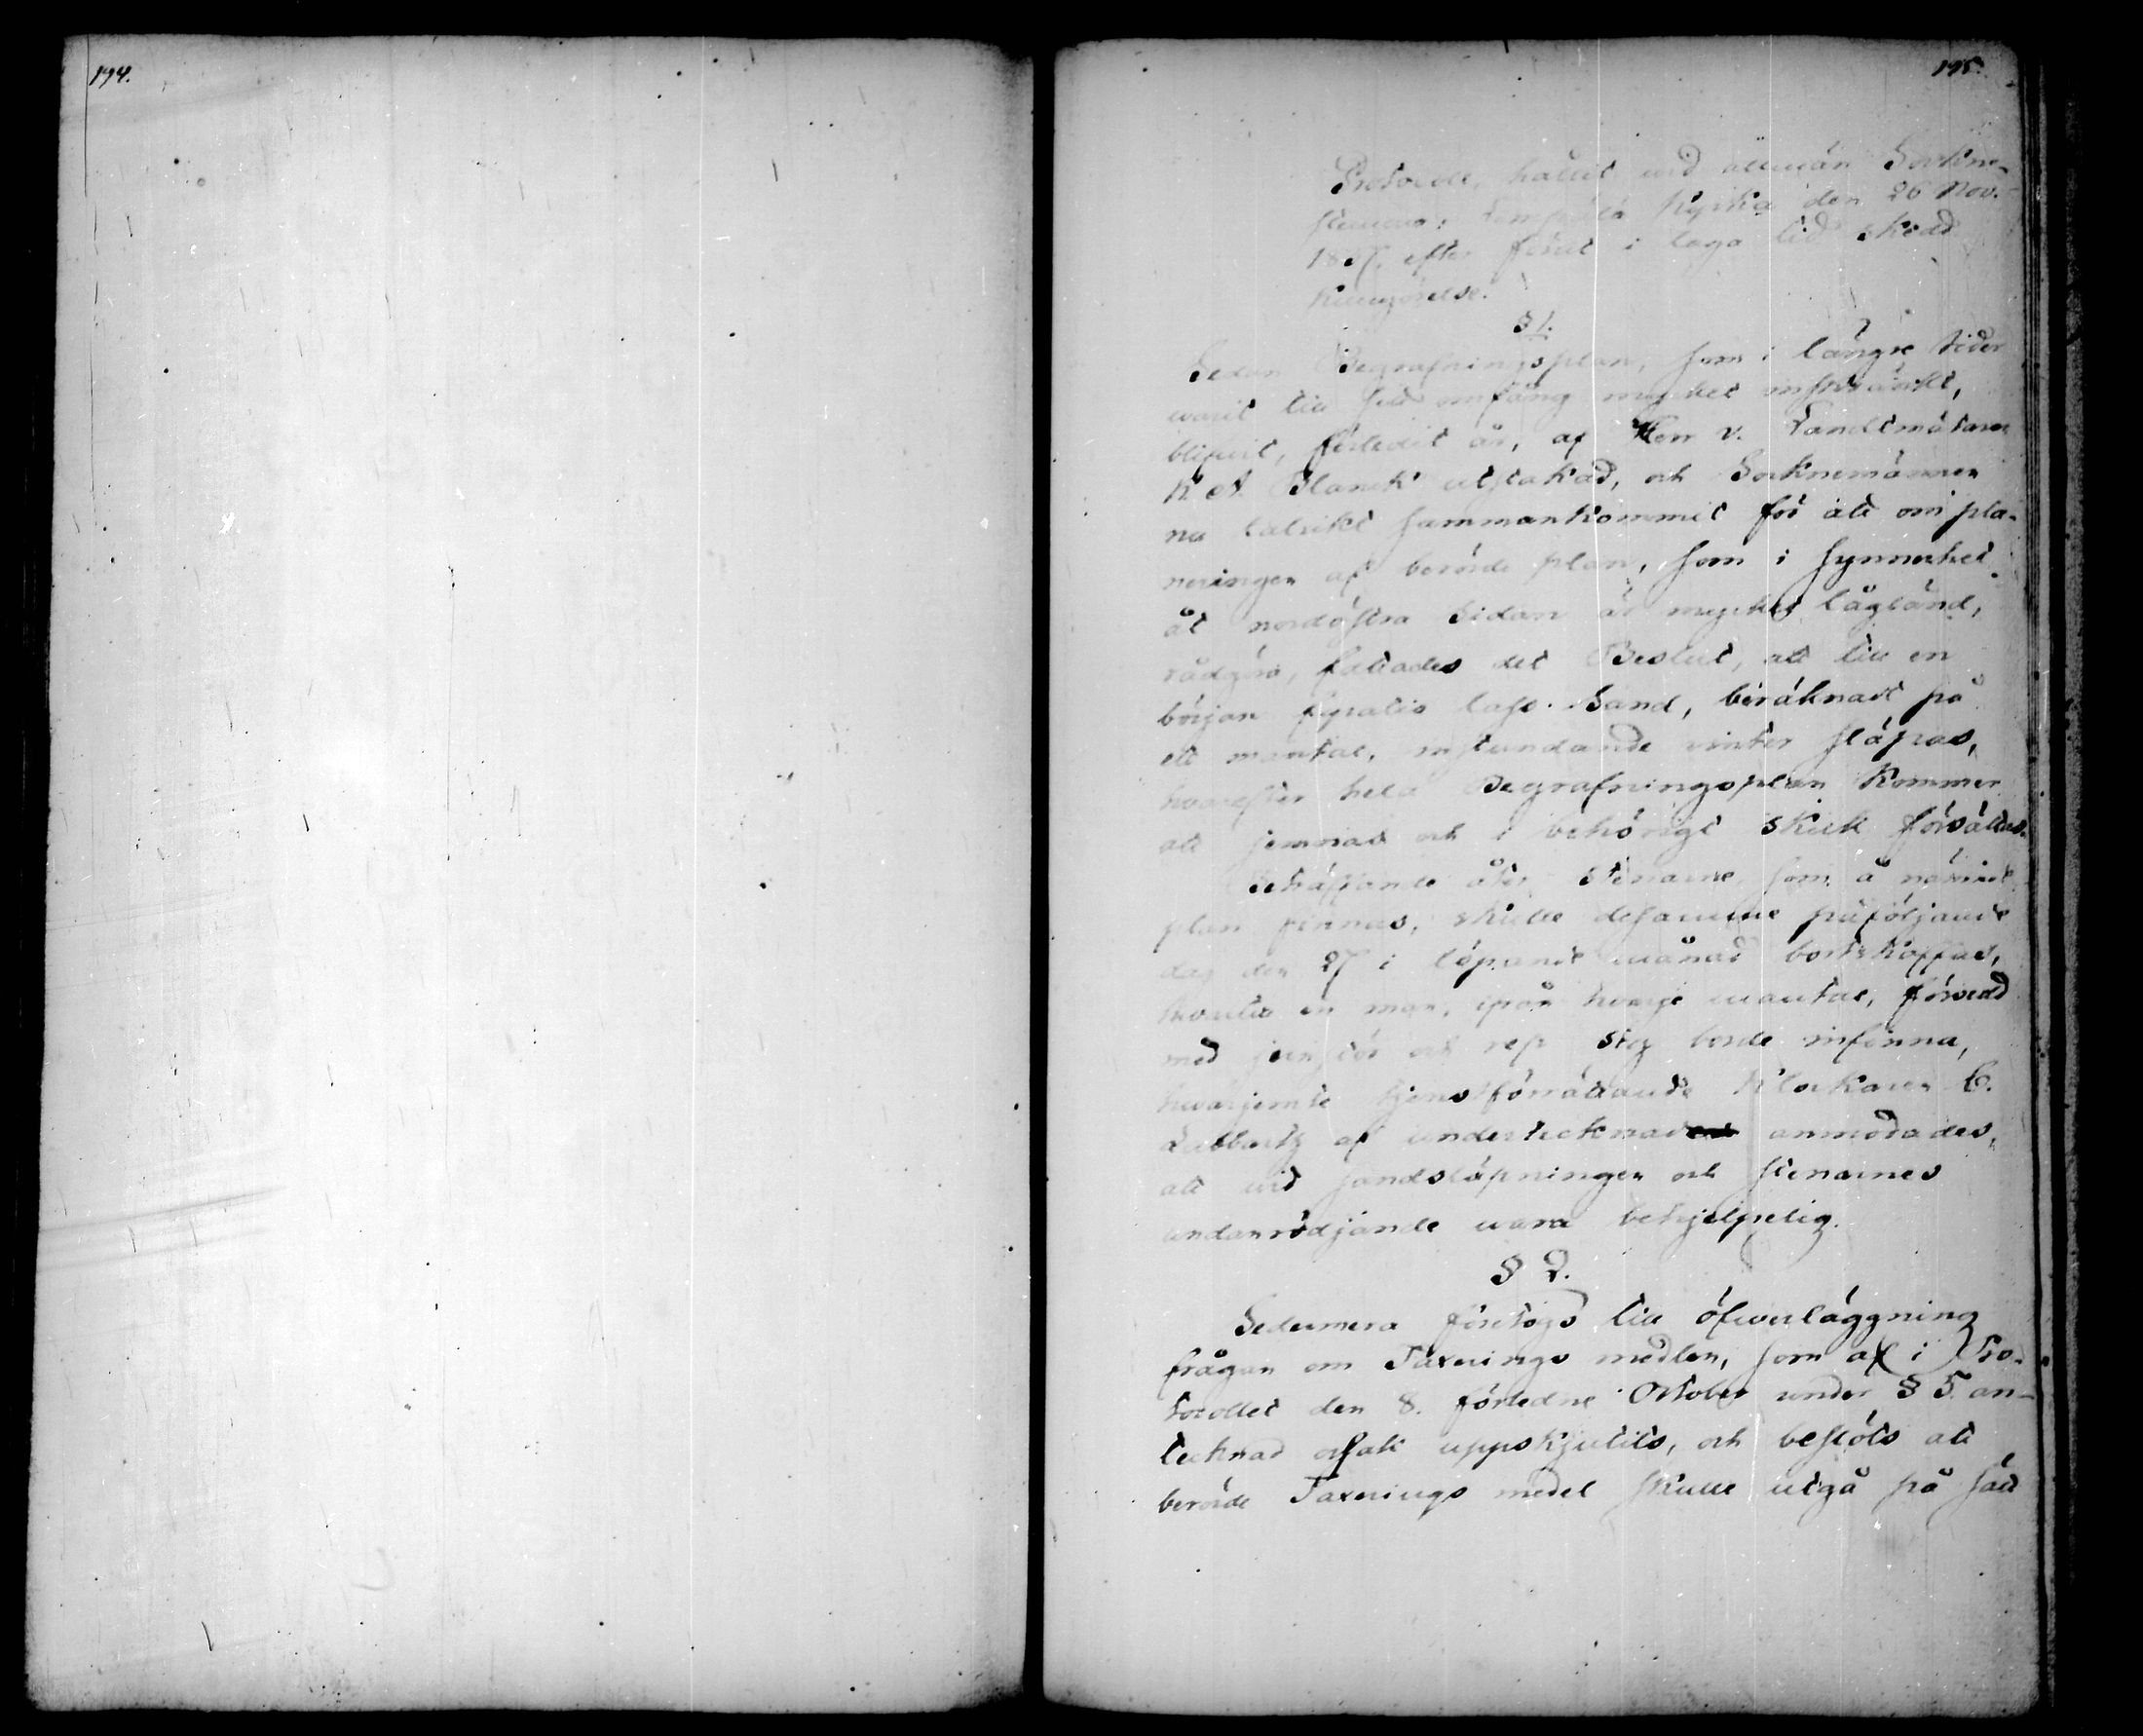 194.
195.
Protocoll, hållit vid allmän Sockne-
stämma i Kyrka den 26 Nov.
efter förut i laga tid skedd
kungörelse.
§ 1.
Sedan Begrafningsplan, som i längre tider
warit till sitt omfång mycket inskränkt,
blifwit, förledit år, af Herr v. Landtmätaren
K. A. Planck utstakad, och Socknemännen
nu talrikt sammankommit för att om pla-
neringen af berörde plan, som i synnerhet
åt nordöstra sidan är mycket lågländ,
rådgöra, fattades det Beslut, att till en
början fyratio lass Sand, beräknadt på
ett mantal, instundande vinter släpas,
hvarefter hela Begrafningsplan kommer
att jemnas och i behörigt skick försättas.
Beträffande åter Stenarne, som å nämnde
plan finnas, skulle desamme påföljande
dag den 27 i löpande månad bortskaffas,
hvartill en man, ifrån hvarje mantal, försedd
med jern och rep sig borde infinna,
hvarjemte tjenstförrättande Klockaren C.
Lubbertz af undertecknad anmodades,
att vid sandsläpningen och stenarnes
undanrödjande wara behjelpelig.
§ 2.
Sedermera företogs till öfwerläggning
frågan om Taxerings medlen, som af i Pro-
tocollet den 8. förledne October under § 5. an-
tecknad orsak uppskjutits, och beslöts att
berörde Taxerings medel skulle utgå på sätt